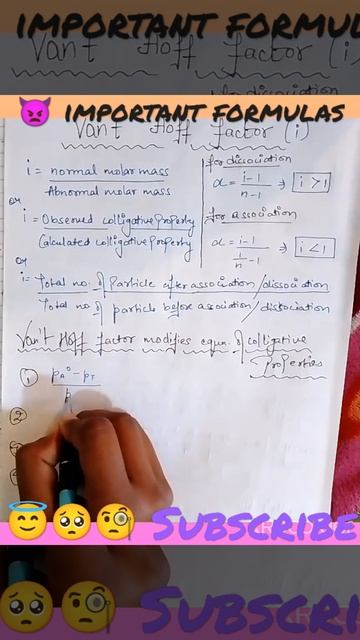 IMPORTANT FORMUL
Van't Hoff factor (i)
👿 IMPORTANT FORMULAS
Van't Hoff factor (i)
i = normal molar mass / Abnormal molar mass
or
i = Observed colligative property / Calculated colligative property
or
i = Total no. of particle after association/dissociation / Total no. of particle before association/dissociation
for dissociation
α = i-1 / n-1 ⇒ i > 1
for association
α = i-1 / 1/n -1 ⇒ i < 1
Van't Hoff factor modifies equn. of colligative
properties
① PA° - PT / P
②
😇 🥺 🧐 SUBSCRIBE
🥺 🧐 SUBSCRI